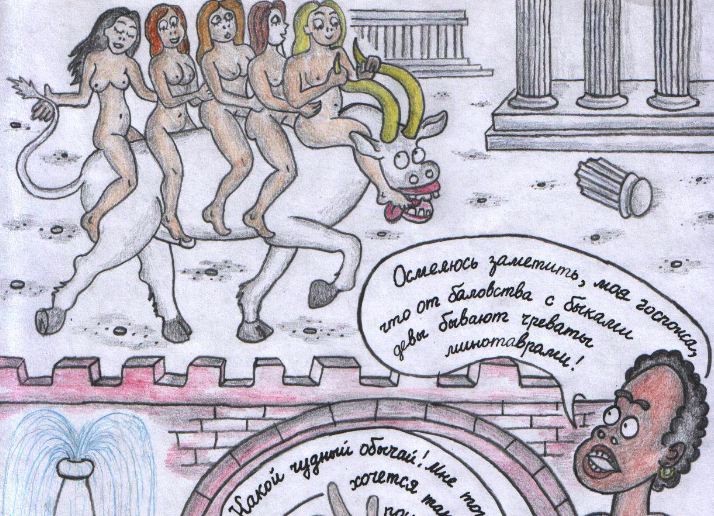 Осмелюсь заметить, моя госпожа,
что от баловства с быками
девы бывают чреваты
минотаврами!
Какой чудный обычай! Мне
хочется